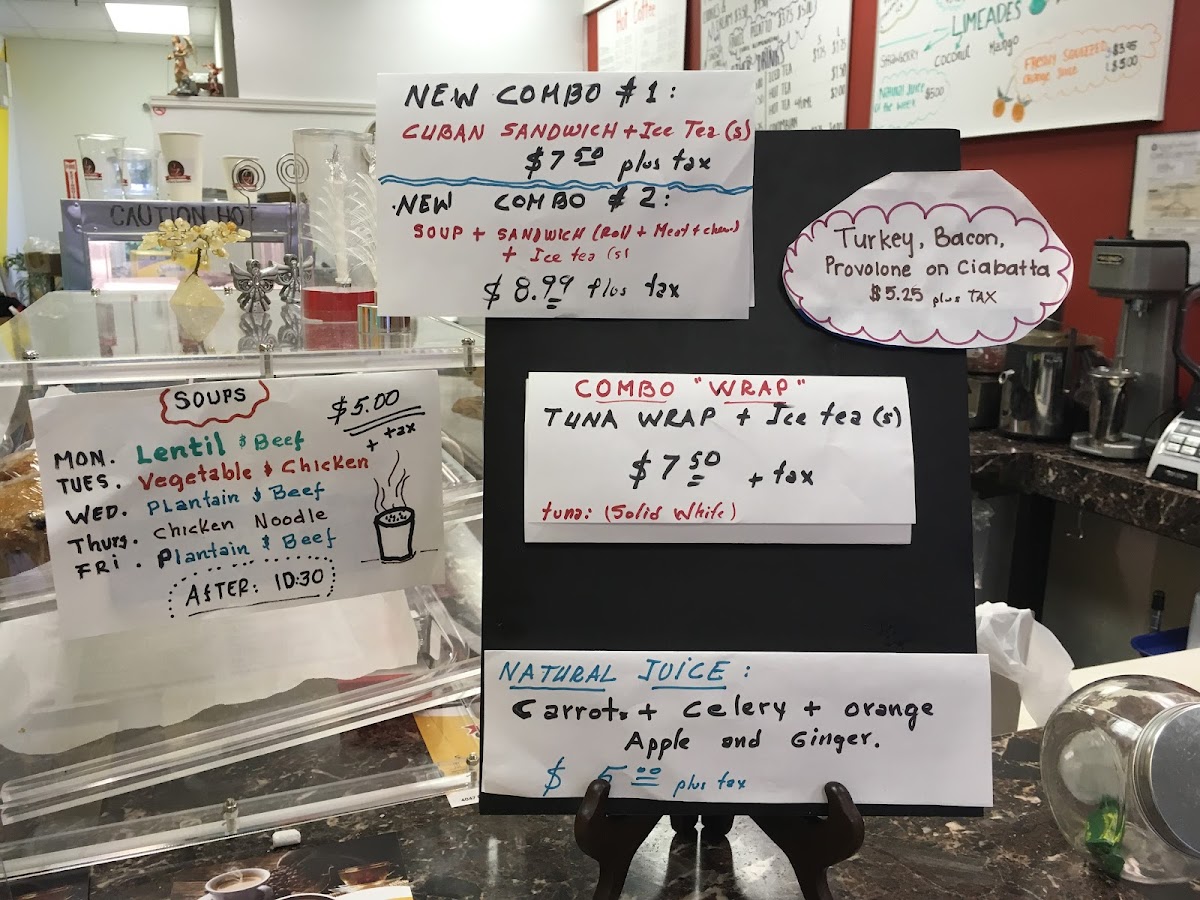 NEW COMBO #1:
CUBAN SANDWICH + Ice Tea (s)
$7 50 plus tax
.NEW COMBO # 2:
SOUP + SANDWICH (Roll + Meat + chees)
+ Ice tea (s)
$8.99 plus tax
Turkey, Bacon,
Provolone on Ciabatta
$5.25 plus TAX
COMBO "WRAP"
TUNA WRAP + Ice tea (s)
$7 50 + tax
tuna: (Solid White)
NATURAL JUICE:
Carrots + celery + orange
Apple and Ginger.
$ 5 00 plus tax
SOUPS
$5.00
+ tax
MON. Lentil & Beef
TUES. Vegetable & Chicken
WED. Plantain & Beef
Thurs. chicken Noodle
FRI. Plantain & Beef
AfTER: 10:30
CAUTION HOT
Hot Coffee
ICED TEA
HOT TEA
LIMEADES
STRAWBERRY
COCONUT
Mango
FRESHLY SQUEEZED
Orange Juice
$3.95
$5.00
NATURAL JUICE
of the week
$5.00